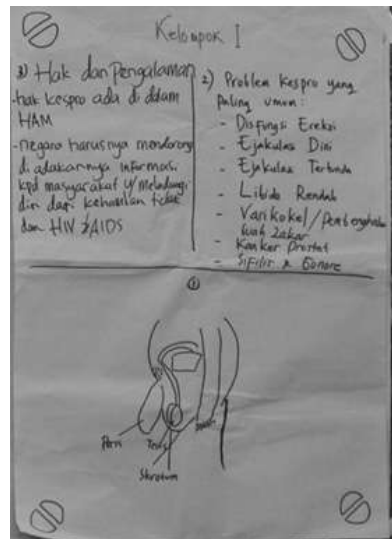 Kelompok I
3) Hak dan Pengalaman
- hak kespro ada di dalam
HAM
- negara harusnya mendorong
diadakannya informasi
kpd masyarakat u/ melindungi
diri dari kehamilan tidak
dan HIV & AIDS
2) Problem Kespro yang
paling umum:
- Disfungsi Ereksi
- Ejakulasi Dini
- Ejakulasi Tertunda
- Libido Rendah
- Varikokel / Pembengkakan
buah zakar
- Kanker Prostat
- Sifilis & Gonore
①
Penis
Testis
Skrotum